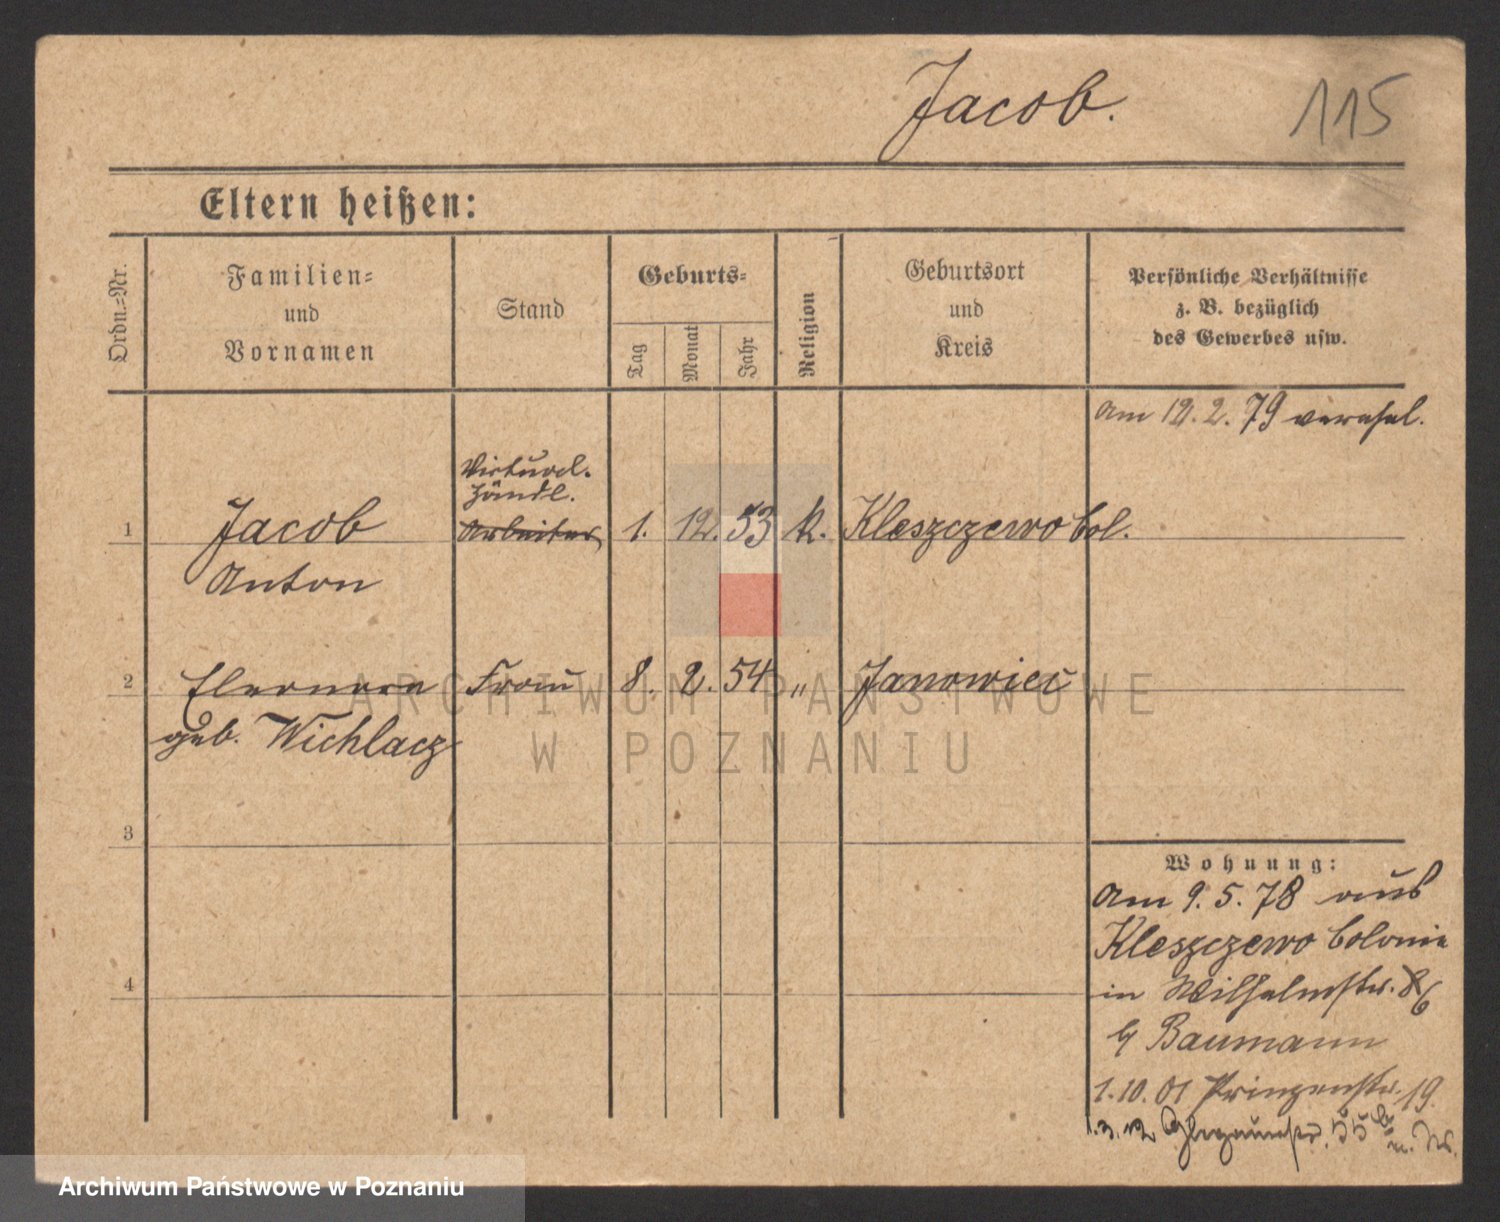 Jacob.
115
Eltern heißen:
Ordn.=Nr.
Familien=
und
Vornamen
Stand
Geburts=
Tag
Monat
Jahr
Religion
Geburtsort
und
Kreis
Persönliche Verhältnisse
z. B. bezüglich
des Gewerbes usw.
am 12. 2. 79 verehel.
1
Jacob
Anton
Victual.
Händl.
Arbeiter
1. 12. 53 k. Kleszczewo Col.
2
Eleonora
geb. Wichlacz
Frau 8. 2. 54 " Janowiec
3
4
Wohnung:
Am 9. 5. 78 aus
Kleszczewo Colonie
in Wilhelmstr.
b/ Baumann
1. 10. 01 Prinzenstr. 19.
1. 3. 12 55
ARCHIWUM PAŃSTWOWE
W POZNANIU
Archiwum Państwowe w Poznaniu